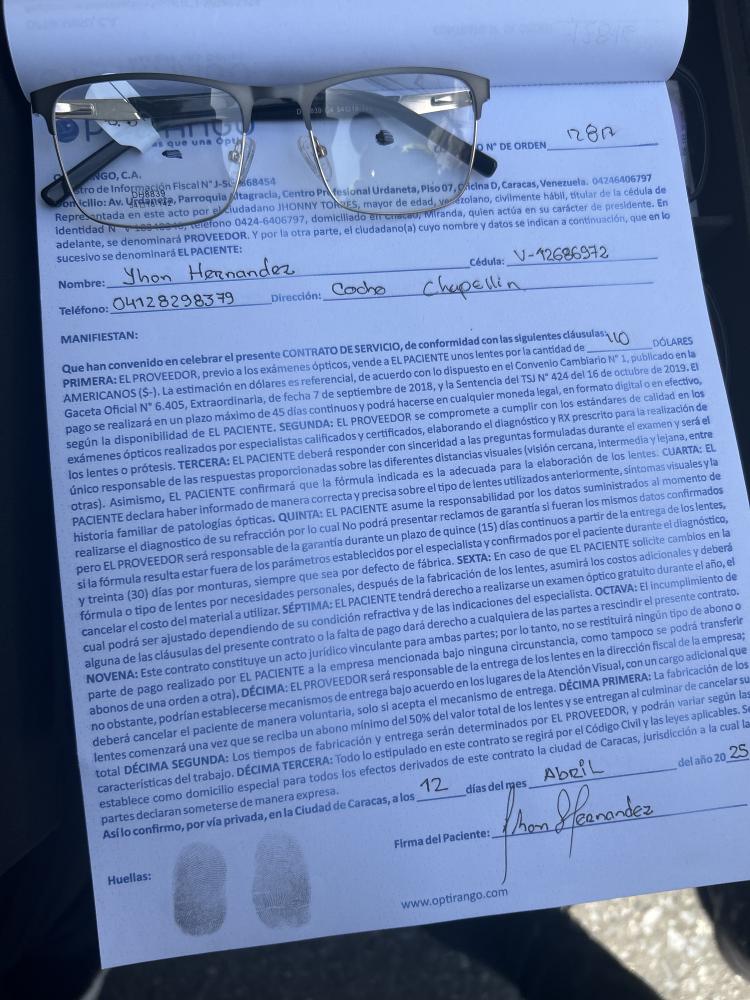 DH8839
N° DE ORDEN
RANGO, C.A.
Registro de Información Fiscal N° J-50 868454
Domicilio: Av. Urdaneta, Parroquia Altagracia, Centro Profesional Urdaneta, Piso 07, Oficina D, Caracas, Venezuela. 04246406797
Representada en este acto por el ciudadano JHONNY TORRES, mayor de edad, venezolano, civilmente hábil, titular de la cédula de
Identidad N° teléfono 0424-6406797, domiciliado en Chacao, Miranda, quien actúa en su carácter de presidente. En
adelante, se denominará PROVEEDOR. Y por la otra parte, el ciudadano(a) cuyo nombre y datos se indican a continuación, que en lo
sucesivo se denominará EL PACIENTE:
Nombre: Yhon Hernandez Cédula: V-12686972
Teléfono: 04128298379 Dirección: Coche Chapellin
MANIFIESTAN:
Que han convenido en celebrar el presente CONTRATO DE SERVICIO, de conformidad con las siguientes cláusulas:
PRIMERA: EL PROVEEDOR, previo a los exámenes ópticos, vende a EL PACIENTE unos lentes por la cantidad de 110 DÓLARES
AMERICANOS ($-). La estimación en dólares es referencial, de acuerdo con lo dispuesto en el Convenio Cambiario N° 1, publicado en la
Gaceta Oficial N° 6.405, Extraordinaria, de fecha 7 de septiembre de 2018, y la Sentencia del TSJ N° 424 del 16 de octubre de 2019. El
pago se realizará en un plazo máximo de 45 días continuos y podrá hacerse en cualquier moneda legal, en formato digital o en efectivo,
según la disponibilidad de EL PACIENTE. SEGUNDA: EL PROVEEDOR se compromete a cumplir con los estándares de calidad en los
exámenes ópticos realizados por especialistas calificados y certificados, elaborando el diagnóstico y RX prescrito para la realización de
los lentes o prótesis. TERCERA: EL PACIENTE deberá responder con sinceridad a las preguntas formuladas durante el examen y será el
único responsable de las respuestas proporcionadas sobre las diferentes distancias visuales (visión cercana, intermedia y lejana, entre
otras). Asimismo, EL PACIENTE confirmará que la fórmula indicada es la adecuada para la elaboración de los lentes. CUARTA: EL
PACIENTE declara haber informado de manera correcta y precisa sobre el tipo de lentes utilizados anteriormente, síntomas visuales y la
historia familiar de patologías ópticas. QUINTA: EL PACIENTE asume la responsabilidad por los datos suministrados al momento de
realizarse el diagnostico de su refracción por lo cual No podrá presentar reclamos de garantía si fueran los mismos datos confirmados
pero EL PROVEEDOR será responsable de la garantía durante un plazo de quince (15) días continuos a partir de la entrega de los lentes,
si la fórmula resulta estar fuera de los parámetros establecidos por el especialista y confirmados por el paciente durante el diagnóstico,
y treinta (30) días por monturas, siempre que sea por defecto de fábrica. SEXTA: En caso de que EL PACIENTE solicite cambios en la
fórmula o tipo de lentes por necesidades personales, después de la fabricación de los lentes, asumirá los costos adicionales y deberá
cancelar el costo del material a utilizar. SÉPTIMA: EL PACIENTE tendrá derecho a realizarse un examen óptico gratuito durante el año, el
cual podrá ser ajustado dependiendo de su condición refractiva y de las indicaciones del especialista. OCTAVA: El incumplimiento de
alguna de las cláusulas del presente contrato o la falta de pago dará derecho a cualquiera de las partes a rescindir el presente contrato.
NOVENA: Este contrato constituye un acto jurídico vinculante para ambas partes; por lo tanto, no se restituirá ningún tipo de abono o
parte de pago realizado por EL PACIENTE a la empresa mencionada bajo ninguna circunstancia, como tampoco se podrá transferir
abonos de una orden a otra). DÉCIMA: EL PROVEEDOR será responsable de la entrega de los lentes en la dirección fiscal de la empresa;
no obstante, podrían establecerse mecanismos de entrega bajo acuerdo en los lugares de la Atención Visual, con un cargo adicional que
deberá cancelar el paciente de manera voluntaria, solo si acepta el mecanismo de entrega. DÉCIMA PRIMERA: La fabricación de los
lentes comenzará una vez que se reciba un abono mínimo del 50% del valor total de los lentes y se entregan al culminar de cancelar su
total DÉCIMA SEGUNDA: Los tiempos de fabricación y entrega serán determinados por EL PROVEEDOR, y podrán variar según las
características del trabajo. DÉCIMA TERCERA: Todo lo estipulado en este contrato se regirá por el Código Civil y las leyes aplicables. Se
establece como domicilio especial para todos los efectos derivados de este contrato la ciudad de Caracas, jurisdicción a la cual la
partes declaran someterse de manera expresa.
Así lo confirmo, por vía privada, en la Ciudad de Caracas, a los 12 días del mes Abril del año 2025
Firma del Paciente: Yhon Hernandez
Huellas:
www.optirango.com